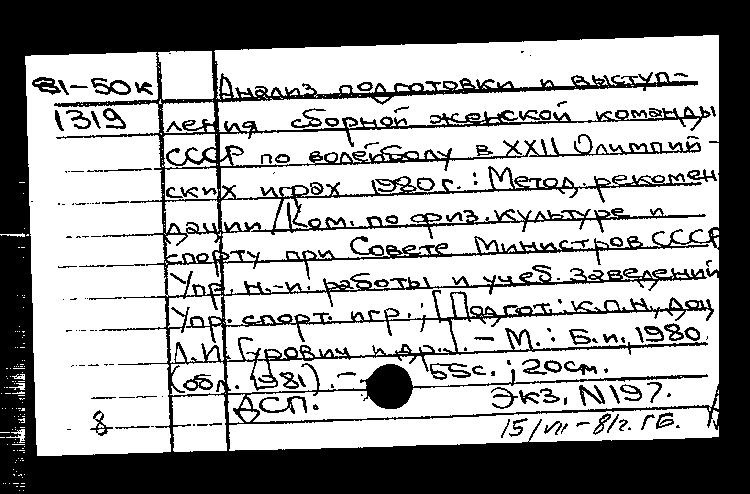 81-50к Анализ подготовки и выступ-
1319 ления сборной женской команды
СССР по волейболу в XXII Олимпий-
ских играх 1980г. : Метод. рекомен
дации / Ком. по физ. культуре и
спорту при Совете Министров СССР
Упр. н.-и. работы и учеб. заведений
Упр. спорт. игр. ; [Подгот.: к.п.н., доц
Л.И. Гурович и др.]. - М. : Б.и., 1980
(обл. 1981). - 55с. ; 20см.
ДСП. Экз. N197.
8 15/VII-81г. ГБ.